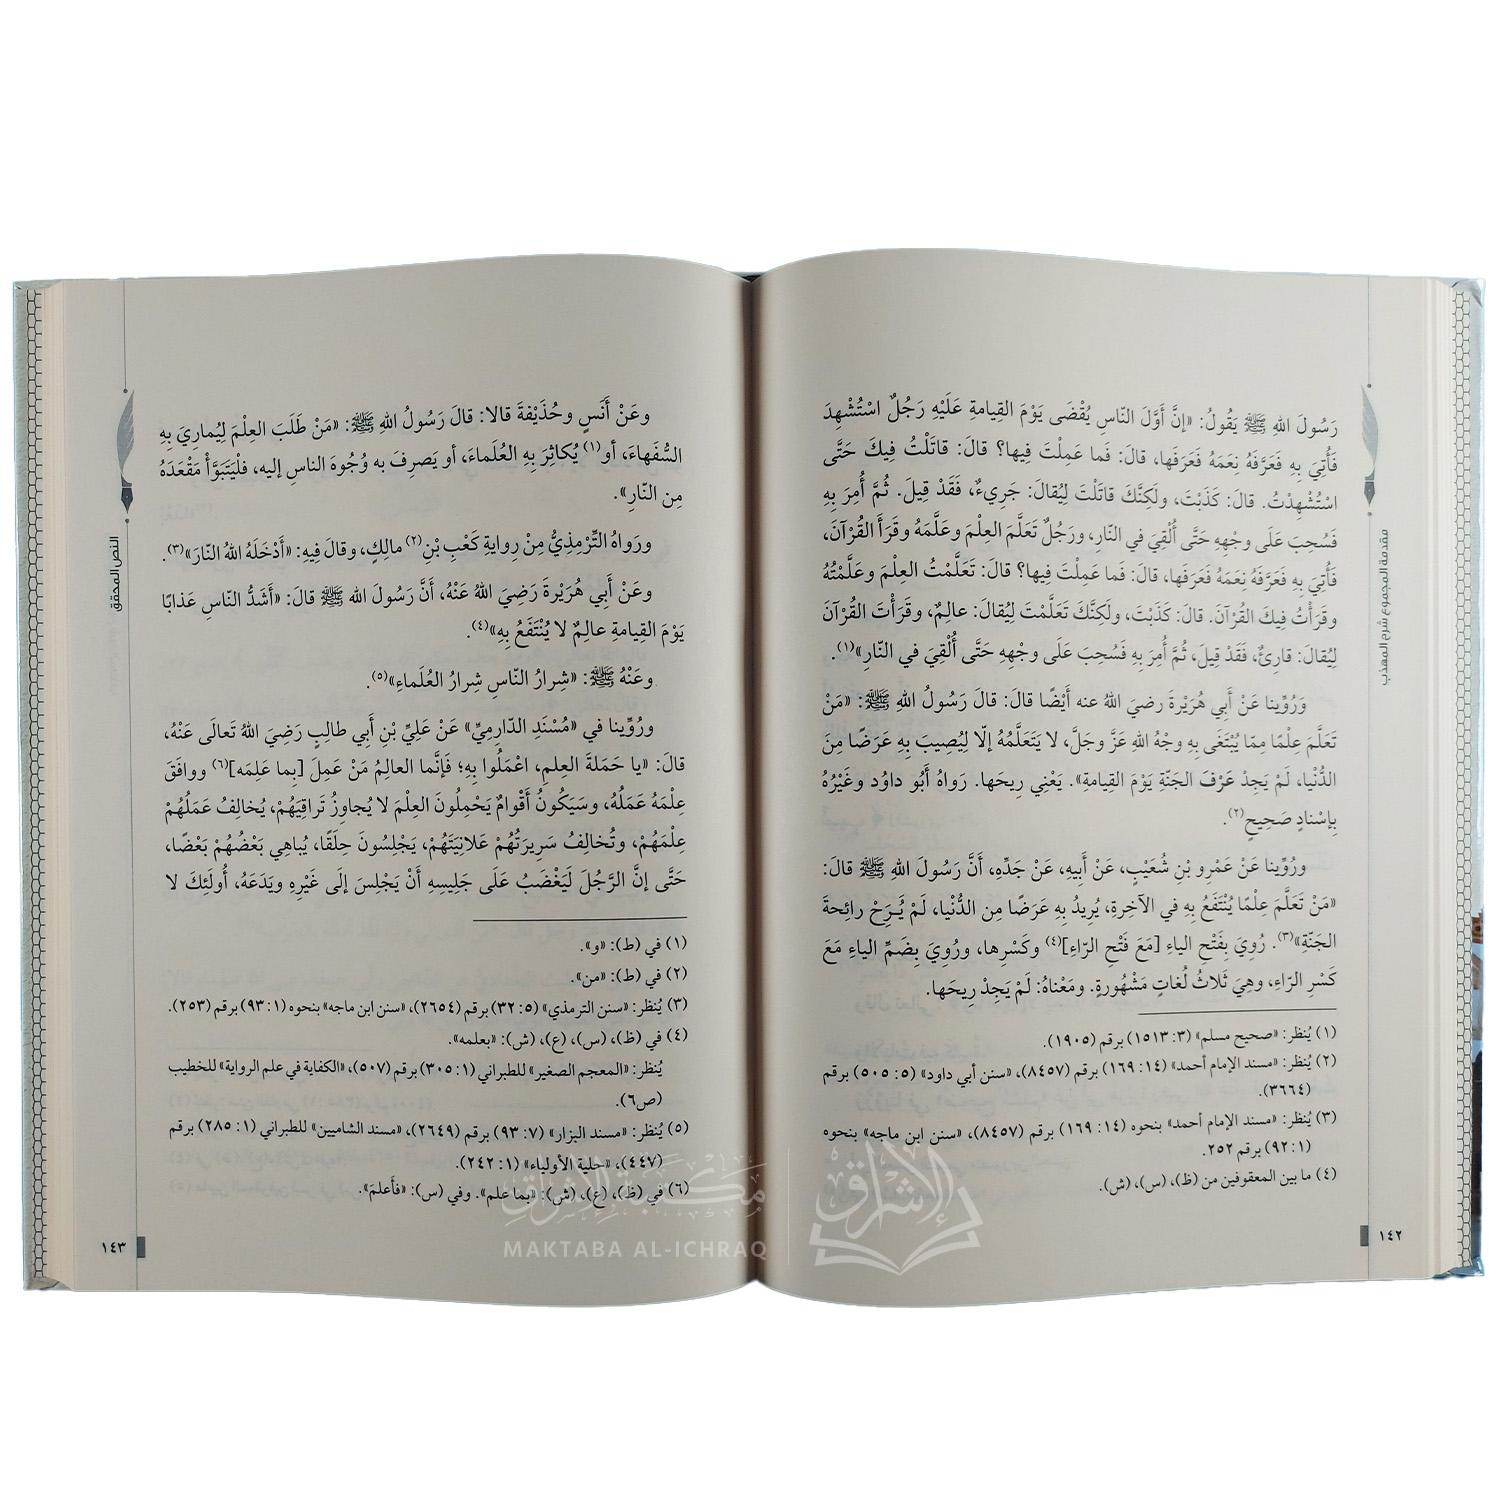 مقدمة المجموع شرح المهذب
رَسُولَ اللهِ ﷺ يَقُولُ: «إنَّ أوَّلَ النّاسِ يُقْضَى يَوْمَ القِيامةِ عَلَيْهِ رَجُلٌ اسْتُشْهِدَ
فَأُتِيَ بِهِ فَعَرَّفَهُ نِعَمَهُ فَعَرَفَها، قالَ: فَما عَمِلْتَ فِيها؟ قالَ: قاتَلْتُ فِيكَ حَتَّى
اسْتُشْهِدْتُ. قالَ: كَذَبْتَ، ولَكِنَّكَ قاتَلْتَ لِيُقالَ: جَرِيءٌ، فَقَدْ قِيلَ. ثُمَّ أُمِرَ بِهِ
فَسُحِبَ عَلَى وجْهِهِ حَتَّى أُلْقِيَ في النّارِ، ورَجُلٌ تَعَلَّمَ العِلْمَ وعَلَّمَهُ وقَرَأَ القُرْآنَ،
فَأُتِيَ بِهِ فَعَرَّفَهُ نِعَمَهُ فَعَرَفَها، قالَ: فَما عَمِلْتَ فِيها؟ قالَ: تَعَلَّمْتُ العِلْمَ وعَلَّمْتُهُ
وقَرَأْتُ فِيكَ القُرْآنَ. قالَ: كَذَبْتَ، ولَكِنَّكَ تَعَلَّمْتَ لِيُقالَ: عالِمٌ، وقَرَأْتَ القُرْآنَ
لِيُقالَ: قارِئٌ، فَقَدْ قِيلَ، ثُمَّ أُمِرَ بِهِ فَسُحِبَ عَلَى وجْهِهِ حَتَّى أُلْقِيَ في النّارِ»(١).
ورُوِّينا عَنْ أبِي هُرَيْرةَ رضيَ اللهُ عنه أيْضًا قالَ: قالَ رَسُولُ اللهِ ﷺ: «مَنْ
تَعَلَّمَ عِلْمًا مِمّا يُبْتَغَى بِهِ وجْهُ اللهِ عَزَّ وجَلَّ، لا يَتَعَلَّمُهُ إلّا لِيُصِيبَ بِهِ عَرَضًا مِنَ
الدُّنْيا، لَمْ يَجِدْ عَرْفَ الجَنَّةِ يَوْمَ القِيامةِ». يَعْنِي رِيحَها. رَواهُ أبُو داوُد وغَيْرُهُ
بِإسْنادٍ صَحِيحٍ(٢).
ورُوِّينا عَنْ عَمْرِو بْنِ شُعَيْبٍ، عَنْ أبِيهِ، عَنْ جَدِّهِ، أنَّ رَسُولَ اللهِ ﷺ قالَ:
«مَنْ تَعَلَّمَ عِلْمًا يُنْتَفَعُ بِهِ في الآخِرةِ، يُرِيدُ بِهِ عَرَضًا مِن الدُّنْيا، لَمْ يُرَحْ رائِحةَ
الجَنّةِ»(٣). رُوِيَ بِفَتْحِ الياءِ [مَعَ فَتْحِ الرّاءِ](٤) وكَسْرِها، ورُوِيَ بِضَمِّ الياءِ مَعَ
كَسْرِ الرّاءِ، وهِيَ ثَلاثُ لُغاتٍ مَشْهُورةٍ. ومَعْناهُ: لَمْ يَجِدْ رِيحَها.
(١) يُنظر: «صحيح مسلم» (٣: ١٥١٣) برقم (١٩٠٥).
(٢) يُنظر: «مسند الإمام أحمد» (١٤: ١٦٩) برقم (٨٤٥٧)، «سنن أبي داود» (٥: ٥٠٥) برقم
(٣٦٦٤).
(٣) يُنظر: «مسند الإمام أحمد» بنحوه (١٤: ١٦٩) برقم (٨٤٥٧)، «سنن ابن ماجه» بنحوه
(١: ٩٢) برقم ٢٥٢.
(٤) ما بين المعقوفين من (ظ)، (س)، (ش).
١٤٢
النص المحقق
وعَنْ أنَسٍ وحُذَيْفةَ قالا: قالَ رَسُولُ اللهِ ﷺ: «مَنْ طَلَبَ العِلْمَ لِيُمارِيَ بِهِ
السُّفَهاءَ، أو(١) يُكاثِرَ بِهِ العُلَماءَ، أو يَصرِفَ به وُجُوهَ الناسِ إليه، فلْيَتَبَوَّأْ مَقْعَدَهُ
مِن النّارِ».
ورَواهُ التِّرْمِذِيُّ مِنْ رِوايةِ كَعْبِ بْنِ(٢) مالِكٍ، وقالَ فِيهِ: «أدْخَلَهُ اللهُ النّارَ»(٣).
وعَنْ أبِي هُرَيْرةَ رَضِيَ اللهُ عَنْهُ، أنَّ رَسُولَ الله ﷺ قالَ: «أشَدُّ النّاسِ عَذابًا
يَوْمَ القِيامةِ عالِمٌ لا يُنْتَفَعُ بِهِ»(٤).
وعَنْهُ ﷺ: «شِرارُ النّاسِ شِرارُ العُلَماءِ»(٥).
ورُوِّينا في «مُسْنَدِ الدّارِمِيِّ» عَنْ عَلِيِّ بْنِ أبِي طالِبٍ رَضِيَ اللهُ تَعالَى عَنْهُ،
قالَ: «يا حَمَلةَ العِلمِ، اعْمَلُوا بِهِ؛ فَإنَّما العالِمُ مَنْ عَمِلَ [بِما عَلِمَه](٦) ووافَقَ
عِلْمَهُ عَمَلُهُ، وسَيَكُونُ أقْوامٌ يَحْمِلُونَ العِلْمَ لا يُجاوِزُ تَراقِيَهُمْ، يُخالِفُ عَمَلُهُمْ
عِلْمَهُمْ، وتُخالِفُ سَرِيرَتُهُمْ عَلانِيَتَهُمْ، يَجْلِسُونَ حِلَقًا، يُباهِي بَعْضُهُمْ بَعْضًا،
حَتَّى إنَّ الرَّجُلَ لَيَغْضَبُ عَلَى جَلِيسِهِ أنْ يَجْلِسَ إلَى غَيْرِهِ ويَدَعَهُ، أُولَئِكَ لا
(١) في (ط): «و».
(٢) في (ط): «من».
(٣) يُنظر: «سنن الترمذي» (٥: ٣٢) برقم (٢٦٥٤)، «سنن ابن ماجه» بنحوه (١: ٩٣) برقم (٢٥٣).
(٤) في (ظ)، (س)، (ع)، (ش): «بعلمه».
يُنظر: «المعجم الصغير» للطبراني (١: ٣٠٥) برقم (٥٠٧)، «الكفاية في علم الرواية» للخطيب
(ص٦).
(٥) يُنظر: «مسند البزار» (٧: ٩٣) برقم (٢٦٤٩)، «مسند الشاميين» للطبراني (١: ٢٨٥) برقم
(٤٤٧)، «حلية الأولياء» (١: ٢٤٢).
(٦) في (ظ)، (ع)، (ش): «بما علم». وفي (س): «فأعلمَ».
١٤٣
مكتبة الإشراق
MAKTABA AL-ICHRAQ
الإشراق